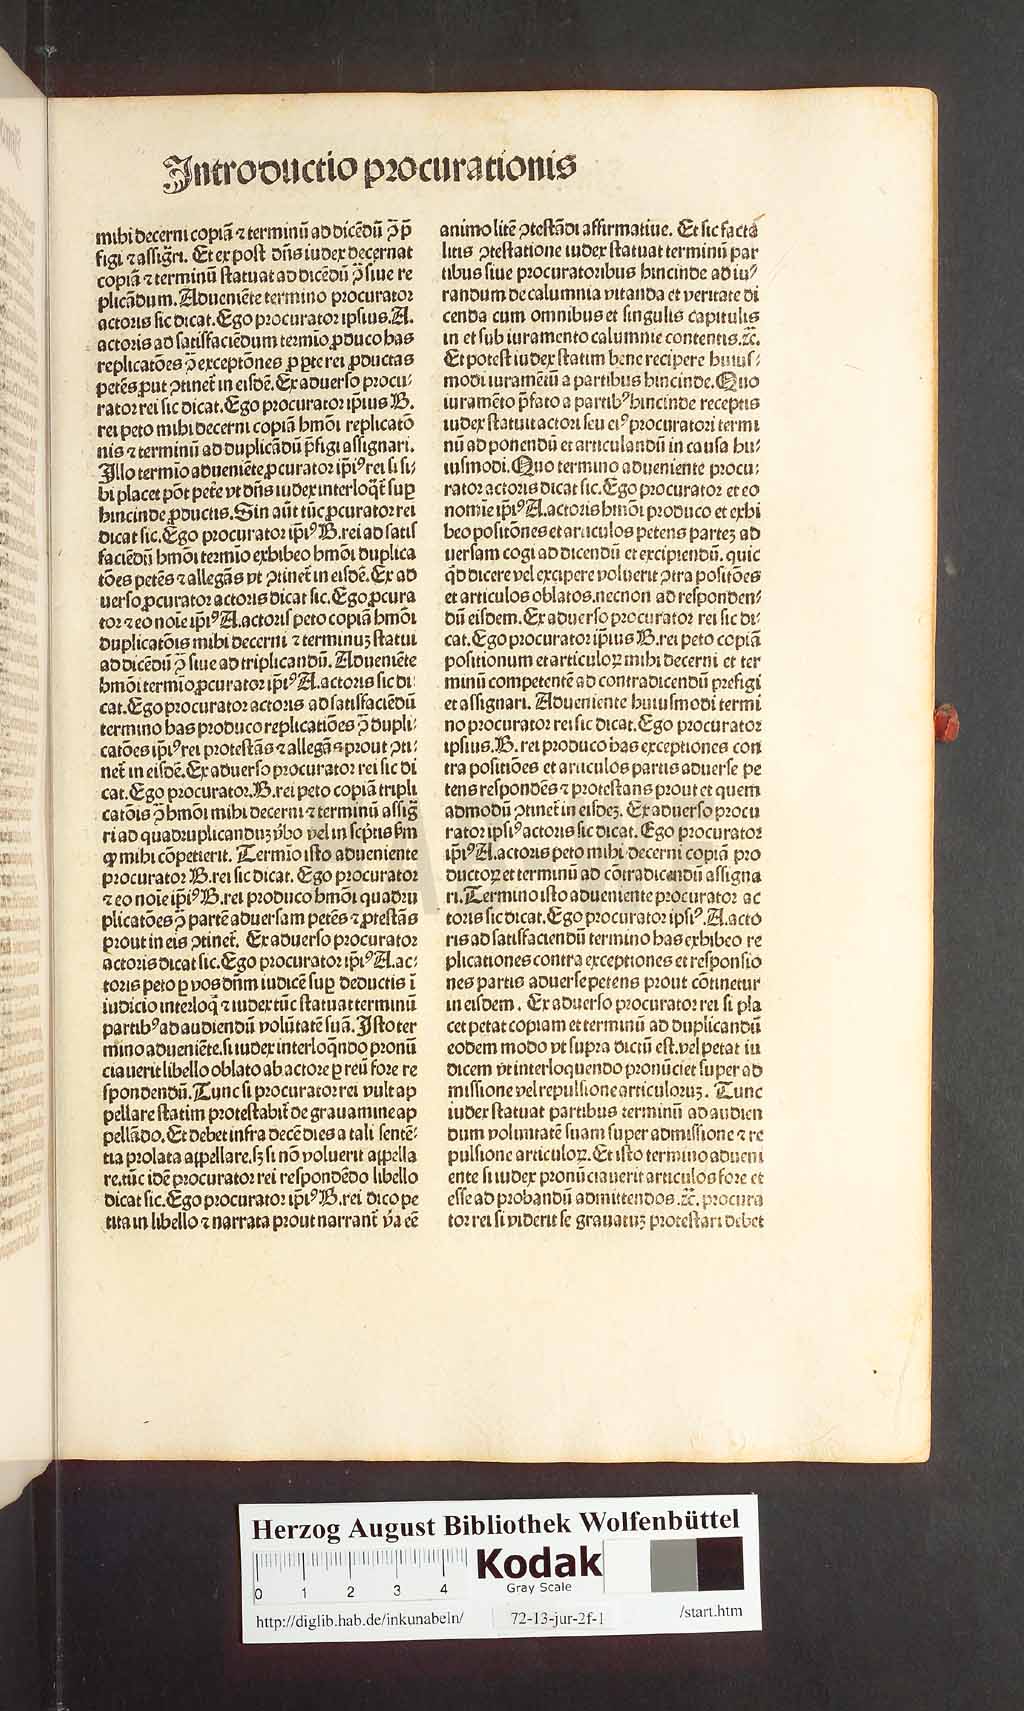 Introductio procurationis
mihi decerni copiã ⁊ terminũ ad dicẽdũ ꝯ̃ p̃
figi ⁊ assig̃ri. Et ex post dñs iudex decernat
copiã ⁊ terminũ statuat ad dicẽdũ ꝯ̃ siue re
plicãdum. Adueniẽte termino procurator
actoris sic dicat. Ego procurator ipsius. A.
actoris ad satisfaciẽdum termĩo ꝓduco has
replicatões ꝯ̃ exceptõnes ꝓ ꝑte rei ꝓductas
petẽs ꝓut ꝯtinet̃ in eisdẽ. Ex aduerso procu⸗
rator rei sic dicat. Ego procurator ip̃ius B.
rei peto mihi decerni copiã hmõi replicatõ
nis ⁊ terminũ ad duplicãdũ p̃figi assignari.
Illo termĩo adueniẽte ꝓcurator ip̃iꝰ rei si si⸗
bi placet põt peter̃ vt dñs iudex interloq̃t̃ suꝑ
hincinde ꝓductis. Sin aũt tũc ꝓcurator rei
dicat sic. Ego procurator ip̃iꝰ B. rei ad satis
faciẽdũ hmõi termĩo exhibeo hmõi duplica
tões petẽs ⁊ allegãs vt ꝯtinet̃ in eisdẽ. Ex ad
uerso ꝓcurator actoris dicat sic. Ego ꝓcura
tor ⁊ eo noĩe ip̃iꝰ A. actoris peto copiã hmõi
duplicatõis mihi decerni ⁊ terminuȝ statui
ad dicẽdũ ꝯ̃ siue ad triplicandũ. Adueniẽte
hmõi termĩo ꝓcurator ip̃iꝰ A. actoris sic di⸗
cat. Ego procurator actoris ad satisfaciẽdũ
termino has produco replicatiões ꝯ̃ dupli⸗
catões ip̃iꝰ rei protestãs ⁊ allegãs prout ꝯti⸗
net̃ in eisdẽ. Ex aduerso procurator rei sic di
cat. Ego procurator. B. rei peto copiã tripli
catõis ꝯ̃ hmõi mihi decerni ⁊ terminũ assig̃
ri ad quadruplicanduȝ ṽbo ṽel in scp̃tis ẜm
ꝙ mihi cõpetierit. Termĩo isto adueniente
procurator B. rei sic dicat. Ego procurator
⁊ eo noĩe ip̃iꝰ B. rei produco hmõi quadru
plicatões ꝯ̃ partẽ aduersam petẽs ⁊ ꝓtestãs
prout in eis ꝯtinet̃. Ex aduerso procurator
actoris dicat sic. Ego procurator ip̃iꝰ A. ac⸗
toris peto ꝑ vos dñm iudicẽ suꝑ deductis ĩ
iudicio interloq̃ ⁊ iudex tũc statuat terminũ
partibꝰ ad audiendũ volũtatẽ suã. Isto ter
mino adueniẽte. si iudex interloq̃ndo pronũ
ciauerit libello oblato ab actore ꝑ reũ fore re
spondendũ. Tunc si procurator rei vult ap
pellare statim protestabit̃ de grauamine ap
pellãdo. Et debet infra decẽ dies a tali sentẽ⸗
tia prolata appellare. sȝ si nõ voluerit appella
re. tũc idẽ procurator rei respondẽdo libello
dicat sic. Ego procurator ip̃iꝰ B. rei dico pe
tita in libello ⁊ narrata prout narrant̃ ṽa eẽ
animo litẽ ꝯtestãdi affirmatiue. Et sic facta
litis ꝯtestatione iudex statuat terminũ par
tibus siue procuratoribus hincinde ad iu⸗
randum de calumnia vitanda et veritate di
cenda cum omnibus et singulis capitulis
in et sub iuramento calumnie contentis. ⁊c̃.
Et potest iudex statim bene recipere huius⸗
modi iuramẽtũ a partibus hincinde. Quo
iuramẽto p̃fato a partibꝰ hincinde receptis
iudex statuit actori seu eiꝰ procuratori termi
nũ ad ponendũ et articulandũ in causa hu⸗
iusmodi. Quo termino adueniente procu⸗
rator actoris dicat sic. Ego procurator et eo
nomĩe ip̃iꝰ A. actoris hmõi produco et exhi
beo positõnes et articulos petens parteȝ ad
uersam cogi ad dicendũ et excipiendũ. quic
q̃d dicere vel excipere voluerit ꝯtra positões
et articulos oblatos. necnon ad responden⸗
dũ eisdem. Ex aduerso procurator rei sic di⸗
cat. Ego procurator ip̃ius B. rei peto copiã
positionum et articuloꝝ mihi decerni et ter
minũ competentẽ ad contradicendũ prefigi
et assignari. Adueniente huiusmodi termi
no procurator rei sic dicat. Ego procurator
ipsius. B. rei produco has exceptiones con
tra positiões et articulos partis aduerse pe
tens respondẽs ⁊ protestans prout et quem
admodũ ꝯtinet̃ in eisdeȝ. Ex aduerso procu
rator ipsiꝰ actoris sic dicat. Ego procurator
ip̃iꝰ A. actoris peto mihi decerni copiã pro
ductoꝝ et terminũ ad cõtradicendũ assigna
ri. Termino isto adueniente procurator ac
toris sic dicat. Ego procurator ipsiꝰ. A. acto
ris ad satisfaciendũ termino has exhibeo re
plicationes contra exceptiones et responsio
nes partis aduerse petens prout cõtinetur
in eisdem. Ex aduerso procurator rei si pla
cet petat copiam et terminũ ad duplicandũ
eodem modo vt supra dictũ est. vel petat iu
dicem ṽt interloquendo pronũciet super ad
missione vel repulsione articuloruȝ. Tunc
iudex statuat partibus terminũ ad audien
dum voluntatẽ suam super admissione ⁊ re
pulsione articuloꝝ. Et isto termino adueni
ente si iudex pronũciauerit articulos fore et
esse ad probandũ admittendos. ⁊c̃. procura
tor rei si viderit se grauatuȝ protestari debet
Herzog August Bibliothek Wolfenbüttel
0 1 2 3 4
Kodak
Gray Scale
http://diglib.hab.de/inkunabeln/ 72-13-jur-2f-1 /start.htm